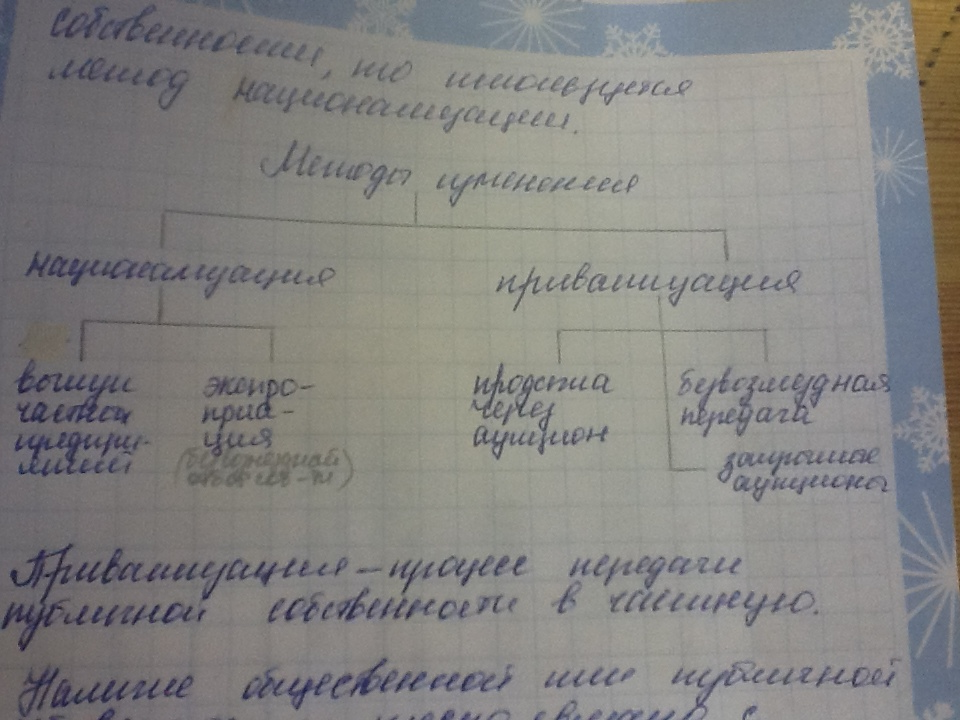 собственности, то используется
метод национализации.
Методы изменения
национализация
приватизация
выкуп
частной
предпри-
экспро-
приа-
ция
продажа
через
аукцион
безвозмездная
передача
аукционы
Приватизация – процесс передачи
публичной собственности в частную.
Наличие общественной или публичной